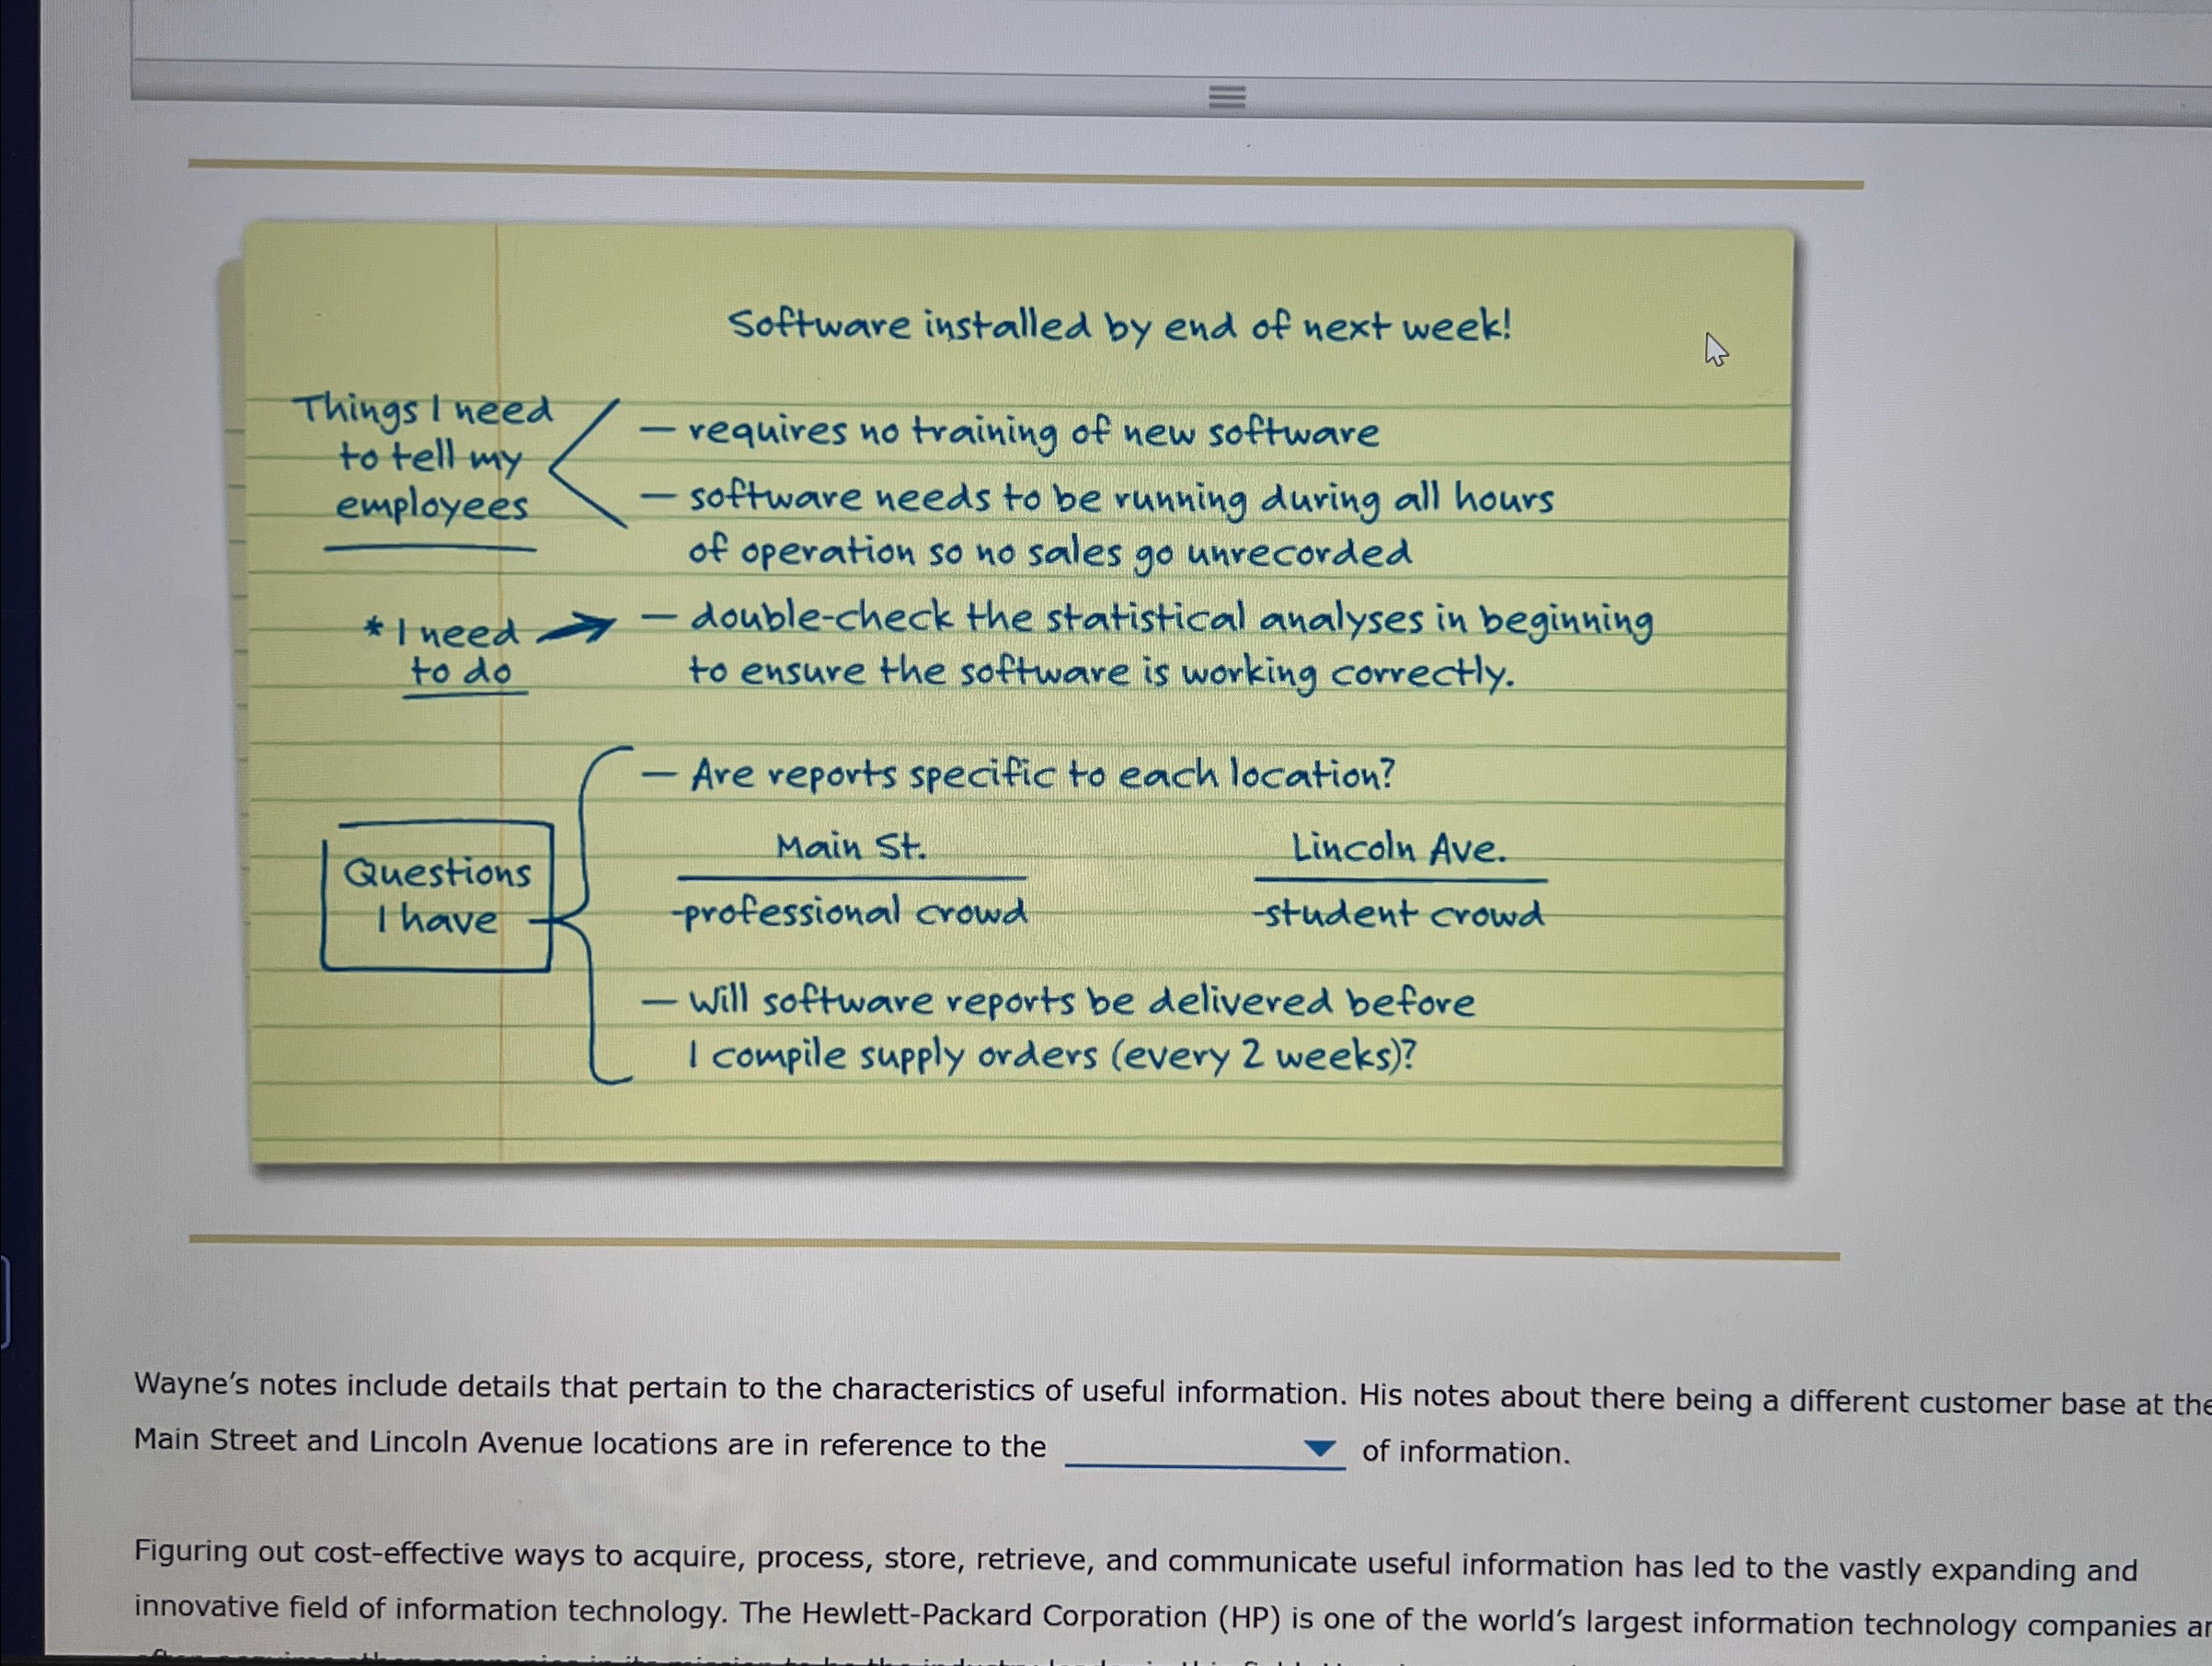 Software installed by end of next week!
Things I need
to tell my
employees
— requires no training of new software
— software needs to be running during all hours
of operation so no sales go unrecorded
* I need
to do
— double-check the statistical analyses in beginning
to ensure the software is working correctly.
Questions
I have
— Are reports specific to each location?
Main St.
-professional crowd
Lincoln Ave.
-student crowd
— Will software reports be delivered before
I compile supply orders (every 2 weeks)?
Wayne's notes include details that pertain to the characteristics of useful information. His notes about there being a different customer base at the
Main Street and Lincoln Avenue locations are in reference to the of information.
Figuring out cost-effective ways to acquire, process, store, retrieve, and communicate useful information has led to the vastly expanding and
innovative field of information technology. The Hewlett-Packard Corporation (HP) is one of the world's largest information technology companies